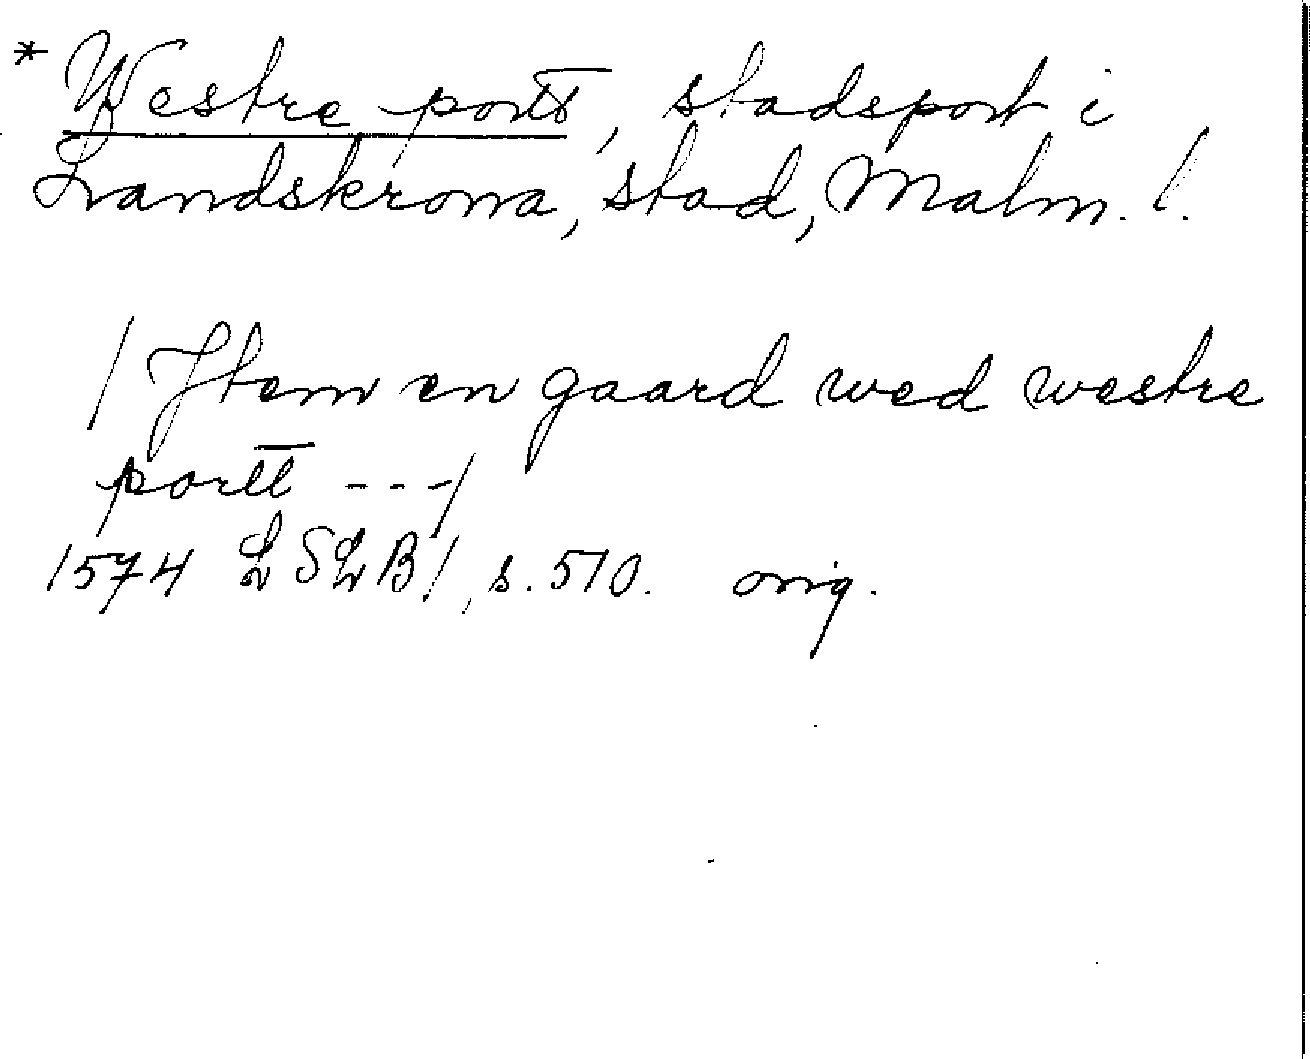 * Westre portt, stadsport i
Landskrona, stad, Malm. l.
/ Jtem en gaard wed westre
portt ---/
1574 LSLB1, s. 510. orig.